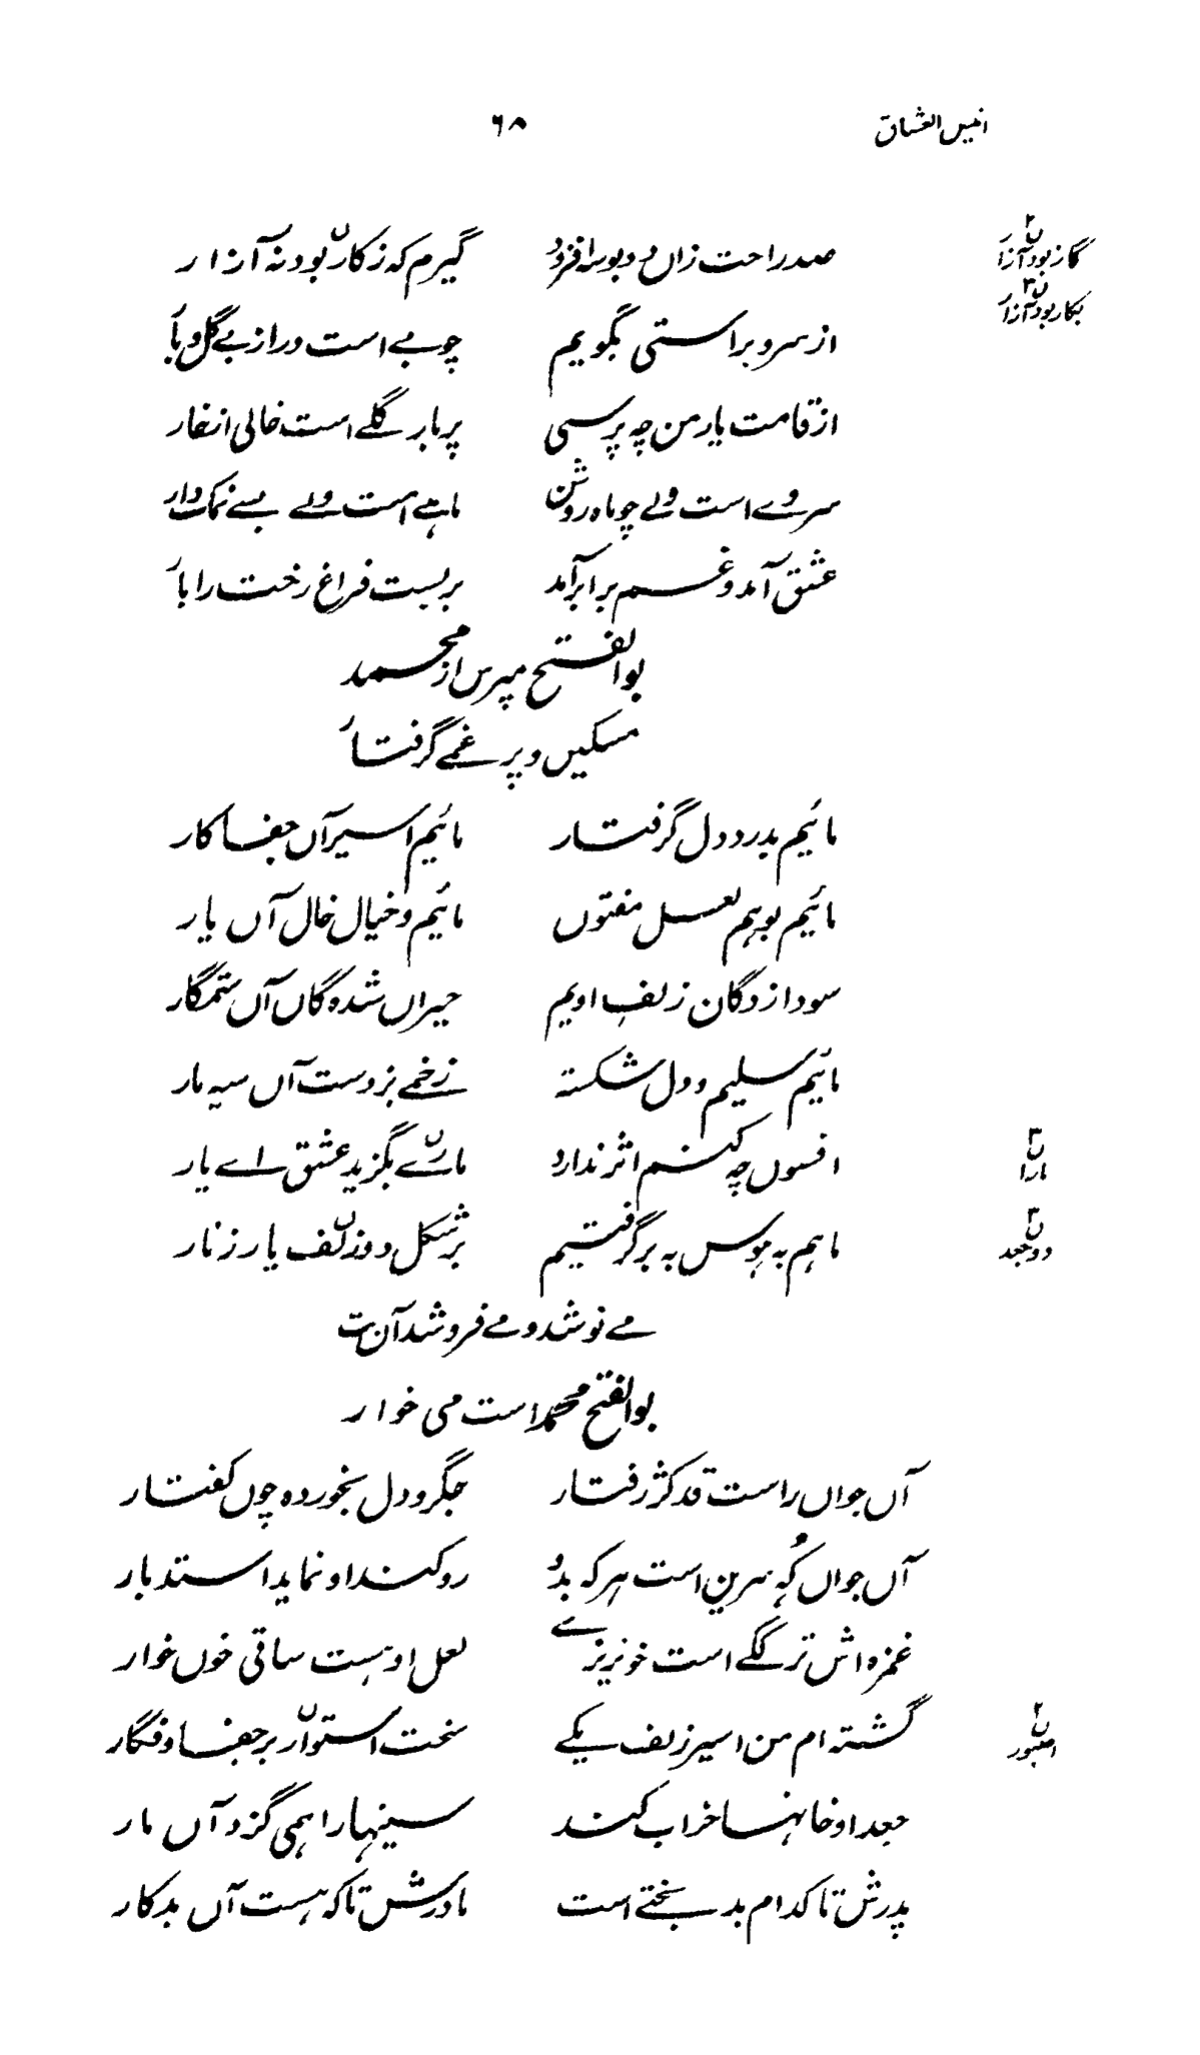 انیس العشاق ۶۸
صد راحت زاں دو بوسہ افزود گیرم کہ ز کار بود نہ آزار
گاز بود آزار
بکار بود آزار
از سرو براستی بگویم چوبے است دراز بے گل و بار
از قامت یار من چہ پرسی پر بار گلے است خالی از خار
سروے است ولے چو ماہ روشن ماہے است ولے بسے نمک دار
عشق آمد و غم برابر آمد بربست فراغ رخت را بار
بوالفتح مپرس از محمد
مسکیں و پر غمے گرفتار
مائیم بدرد دل گرفتار مائیم اسیر آں جفا کار
مائیم بوہم لعل مفتوں مائیم و خیال خال آں یار
سودا زدگان زلف اویم حیراں شدہ گاں آں ستمگار
مائیم سلیم و دل شکستہ زخمے بزدست آں سیہ مار
افسوں چہ کنم اثر ندارد مارے بگزید عشق اے یار
مارا
ماہم بہ ہوس بہ بر گرفتیم بر شکل دو زلف یار زنار
دو جعد
مے نوشد و مے فروشد آن ست
بوالفتح محمد است می خوار
آں جواں راست قد کژ رفتار جگر و دل بخوردہ چوں کفتار
آں جواں کہ سرین است ہر کہ بدو رو کند او نماید استدبار
غمزہ اش ترککے است خونریزے لعل او ہست ساقی خوں خوار
گشتہ ام من اسیر زلف یکے سخت استوار بر جفا و فگار
جعد او خانہا خراب کند سینہا را ہمی گزد آں مار
پدرش تا کدام بد بختے است مادرش تا کہ ہست آں بدکار